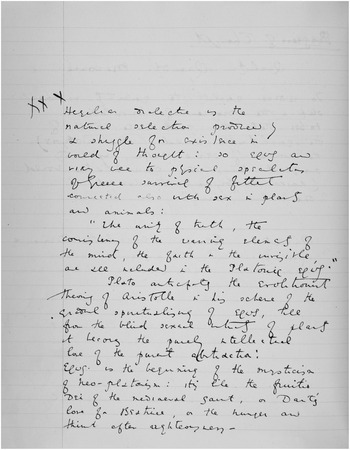 xx x
Hegelian dialectic is the
natural selection produced by
a struggle for existence in
world of thought: so ἔρως and
very are to physical speculation
of Greece survival of fittest
connected also with sex in plants
and animals:
"The unity of truth, the
consistency of the warring elements of
the mind, the faith in the invisible,
are all included in the Platonic ἔρως."
Plato anticipates the Evolutionist
theory of Aristotle in his scheme of the
gradual spiritualising of ἔρως, till
from the blind sexual instinct of plants
it becomes the purely intellectual
love of the purest abstraction:
ἔρως is the beginning of the mysticism
of neo-platonism: it is like the fruitio
Dei of the mediaeval saint, or Dante's
love for Beatrice, or the hunger and
thirst after righteousness –